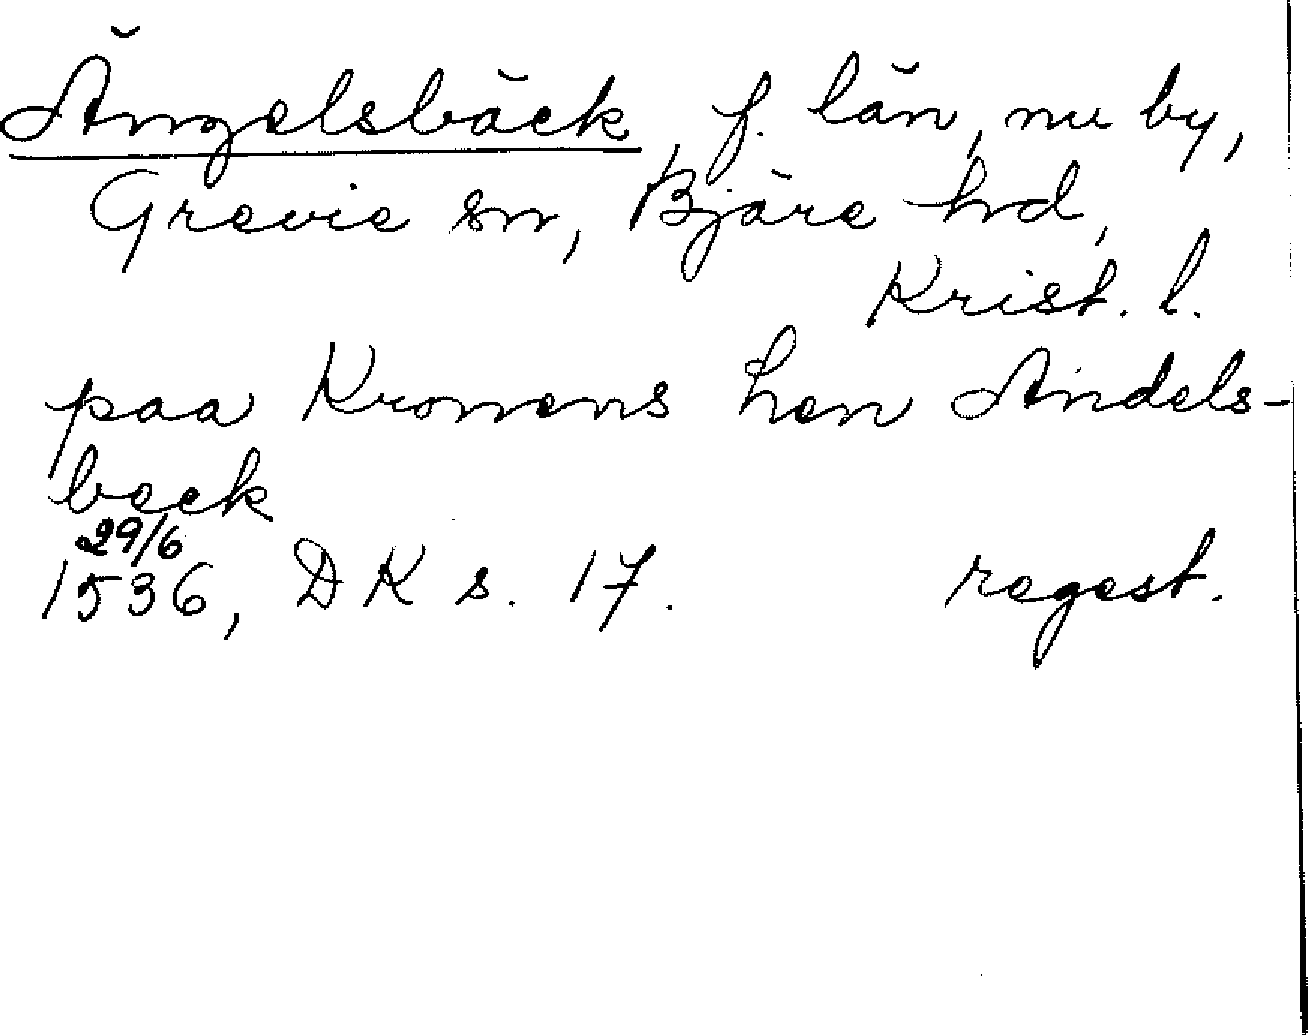 Ängelsbäck f. län, nu by,
Grevie sn, Bjäre hd,
Krist. l.
paa Kronens hen Andels-
beck
29/6
1536, DK s. 17. regest.